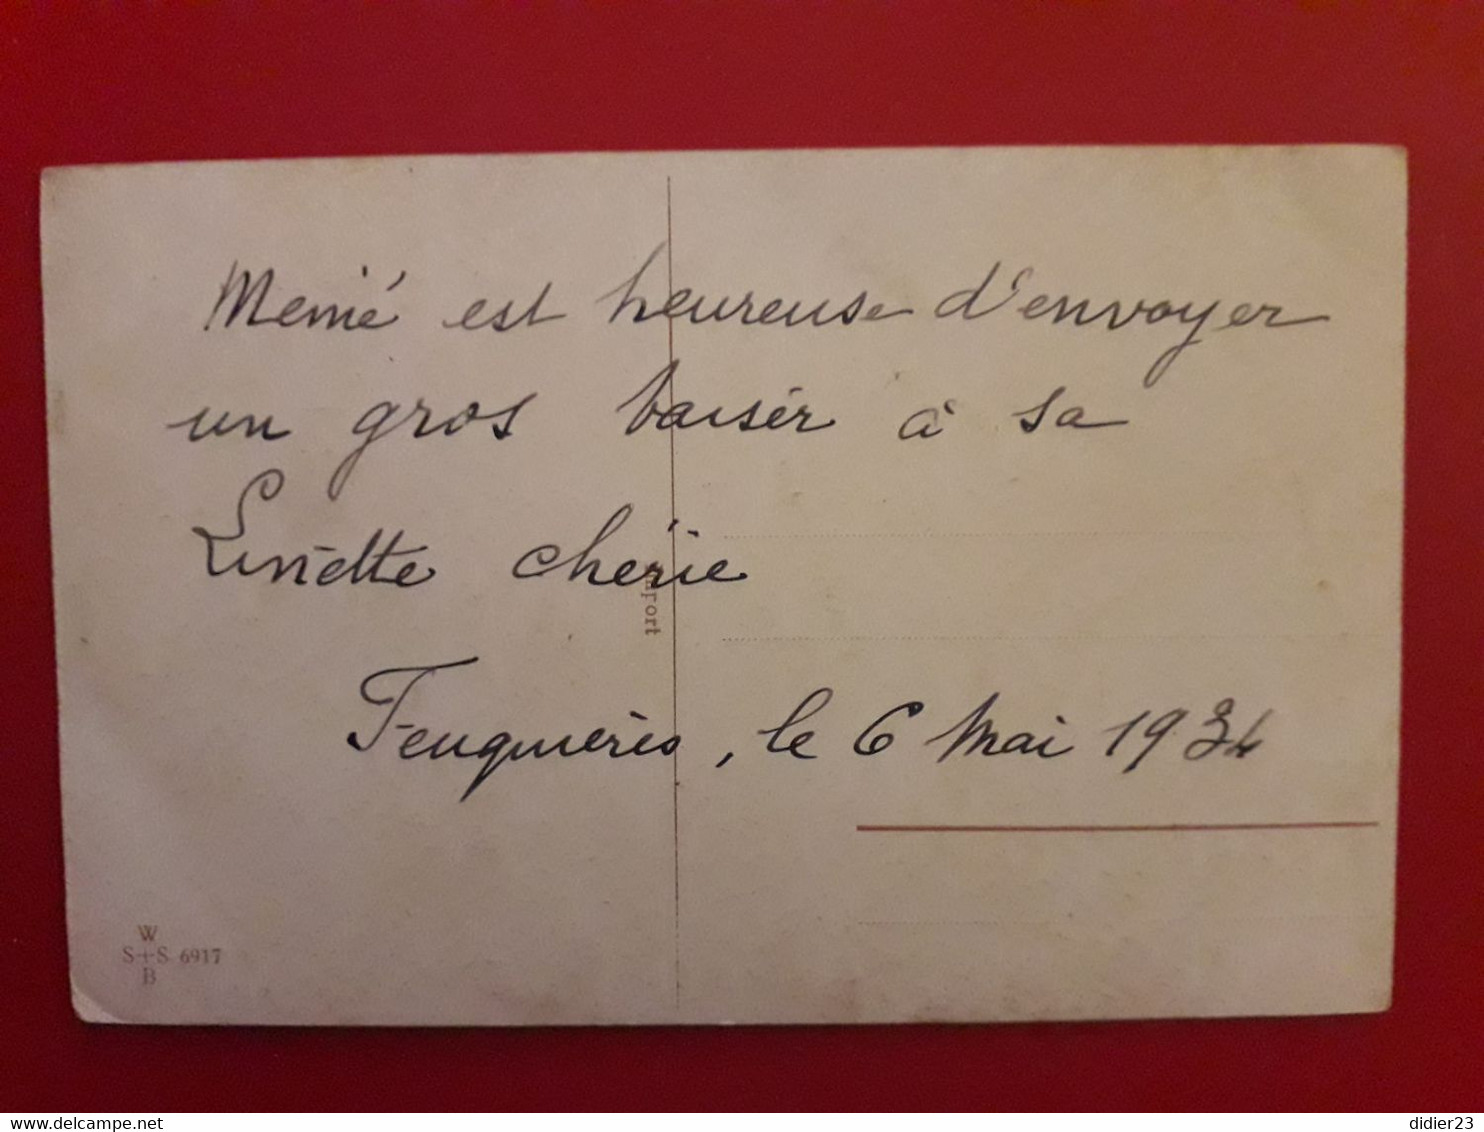 Memé est heureuse d'envoyer
un gros baisér à sa
Linette chérie
Feuquières, le 6 Mai 1934
Import
W
S+S 6917
B
www.delcampe.net
didier23